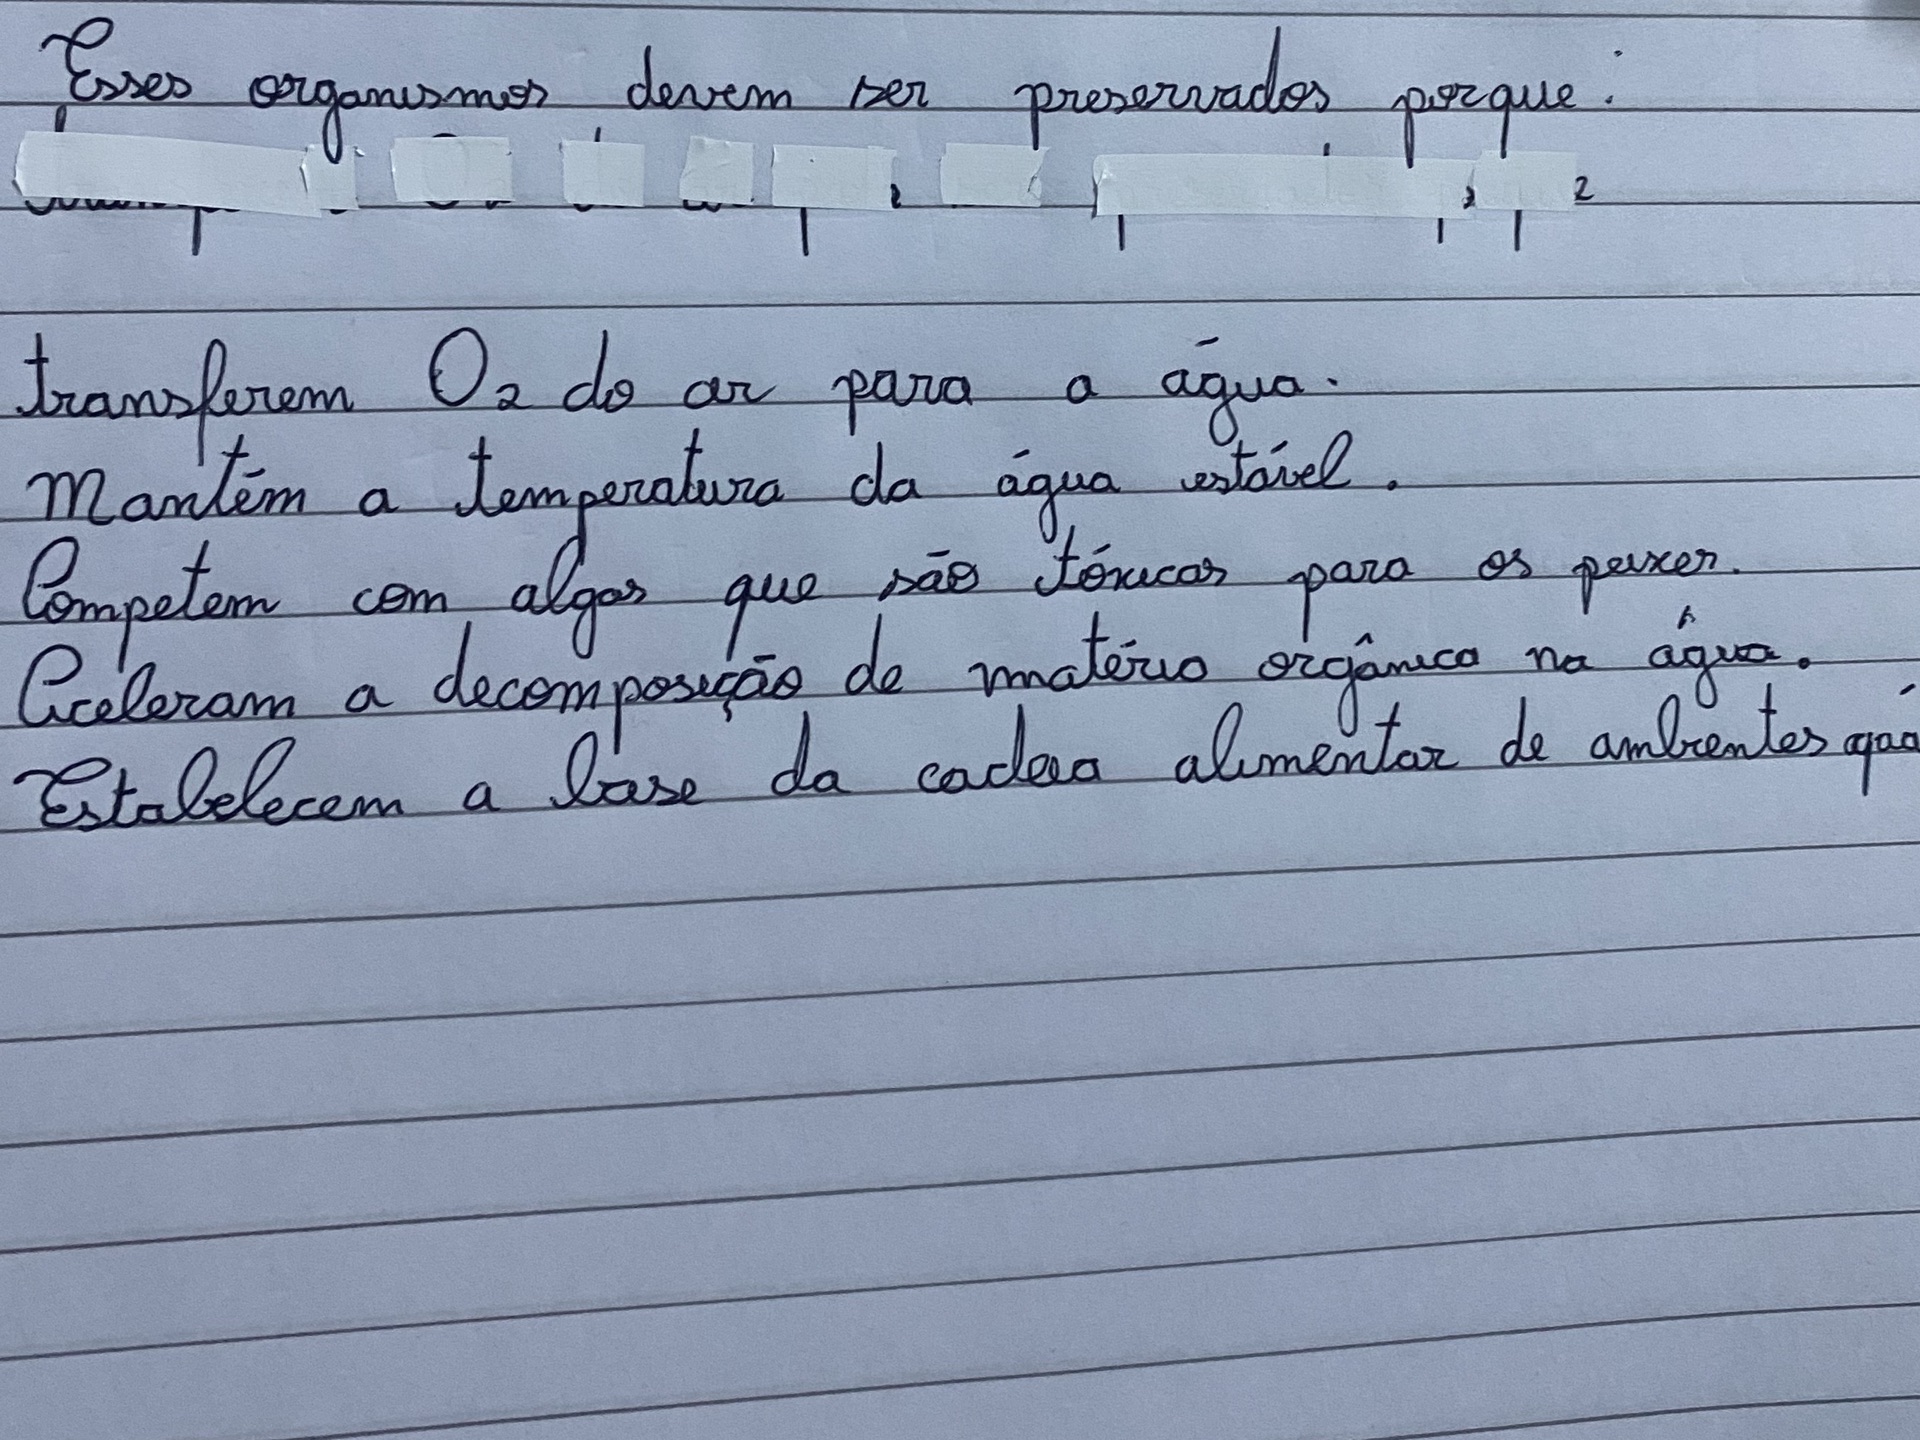 Esses organismos devem ser preservados porque:
transferem O2 do ar para a água.
Mantém a temperatura da água estável.
Competem com algas que são tóxicas para os peixes.
Aceleram a decomposição de matéria orgânica na água.
Estabelecem a base da cadeia alimentar de ambientes